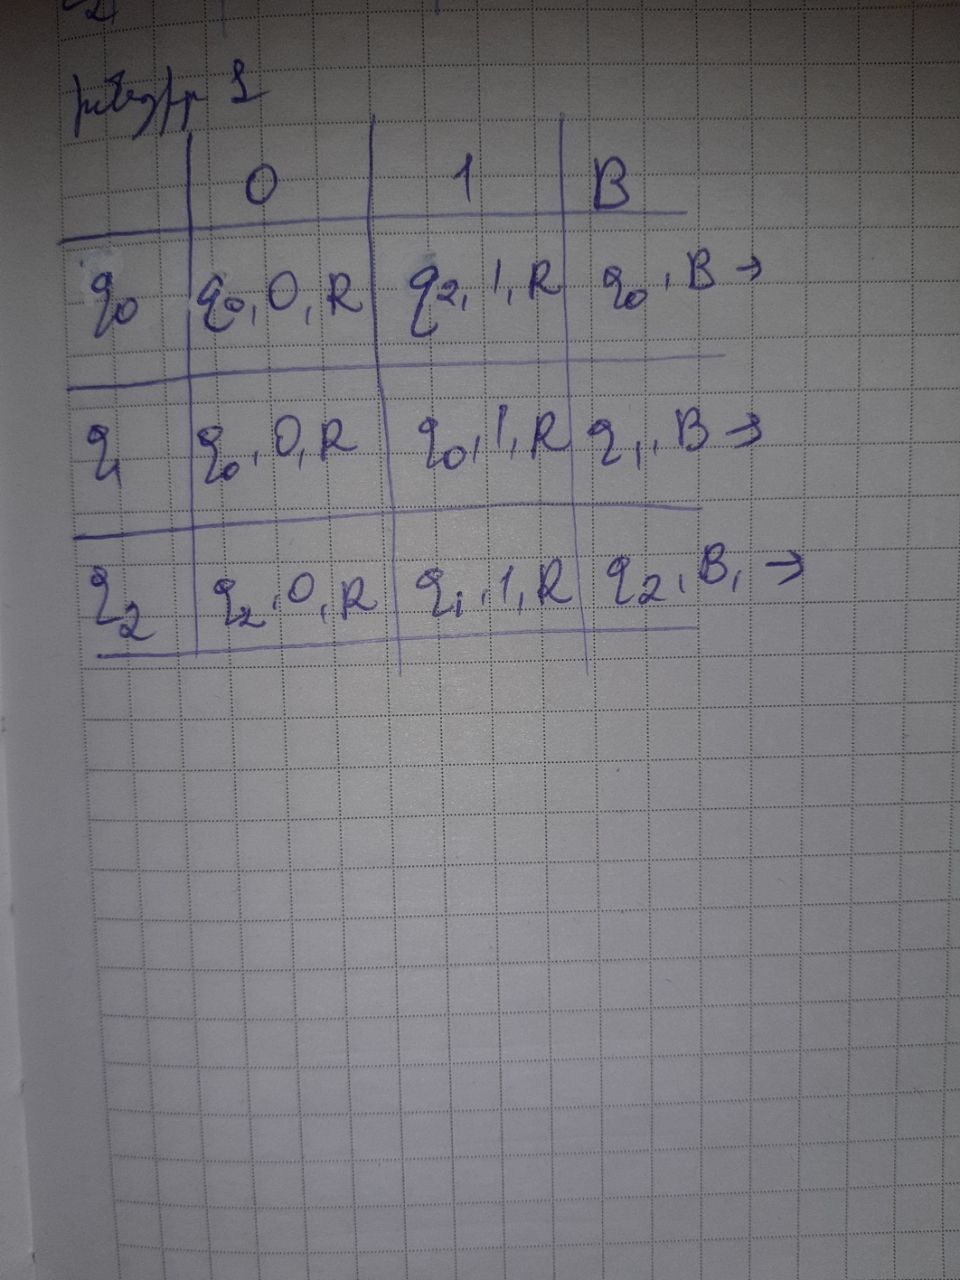 խնդիր 1
0 1 B
q0 q0, 0, R q2, 1, R q0, B →
q1 q0, 0, R q0, 1, R q1, B →
q2 q2, 0, R q1, 1, R q2, B, →